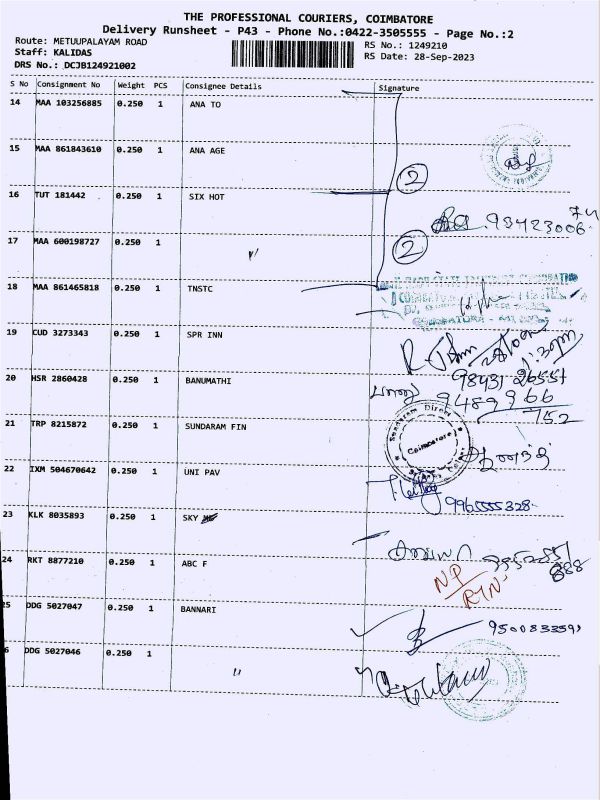 THE PROFESSIONAL COURIERS, COIMBATORE
Delivery Runsheet - P43 - Phone No.:0422-3505555 - Page No.:2
Route: METUUPALAYAM ROAD
RS No.: 1249210
Staff: KALIDAS
RS Date: 28-Sep-2023
DRS No.: DCJB124921002
S No Consignment No Weight PCS Consignee Details Signature
14 MAA 103256885 0.250 1 ANA TO
15 MAA 861843610 0.250 1 ANA AGE
②
16 TUT 181442 0.250 1 SIX HOT
93423006 74
17 MAA 600198727 0.250 1 〃
②
18 MAA 861465818 0.250 1 TNSTC
19 CUD 3273343 0.250 1 SPR INN
1:30pm
98431 26557
20 HSR 2860428 0.250 1 BANUMATHI
9489966
752
21 TRP 8215872 0.250 1 SUNDARAM FIN
Sundaram Direct
Coimbatore
22 IXM 504670642 0.250 1 UNI PAV
9965555328
23 KLK 8035893 0.250 1 SKY
24 RKT 8877210 0.250 1 ABC F
888
NP
RTN
25 DDG 5027047 0.250 1 BANNARI
9500833591
6 DDG 5027046 0.250 1 〃